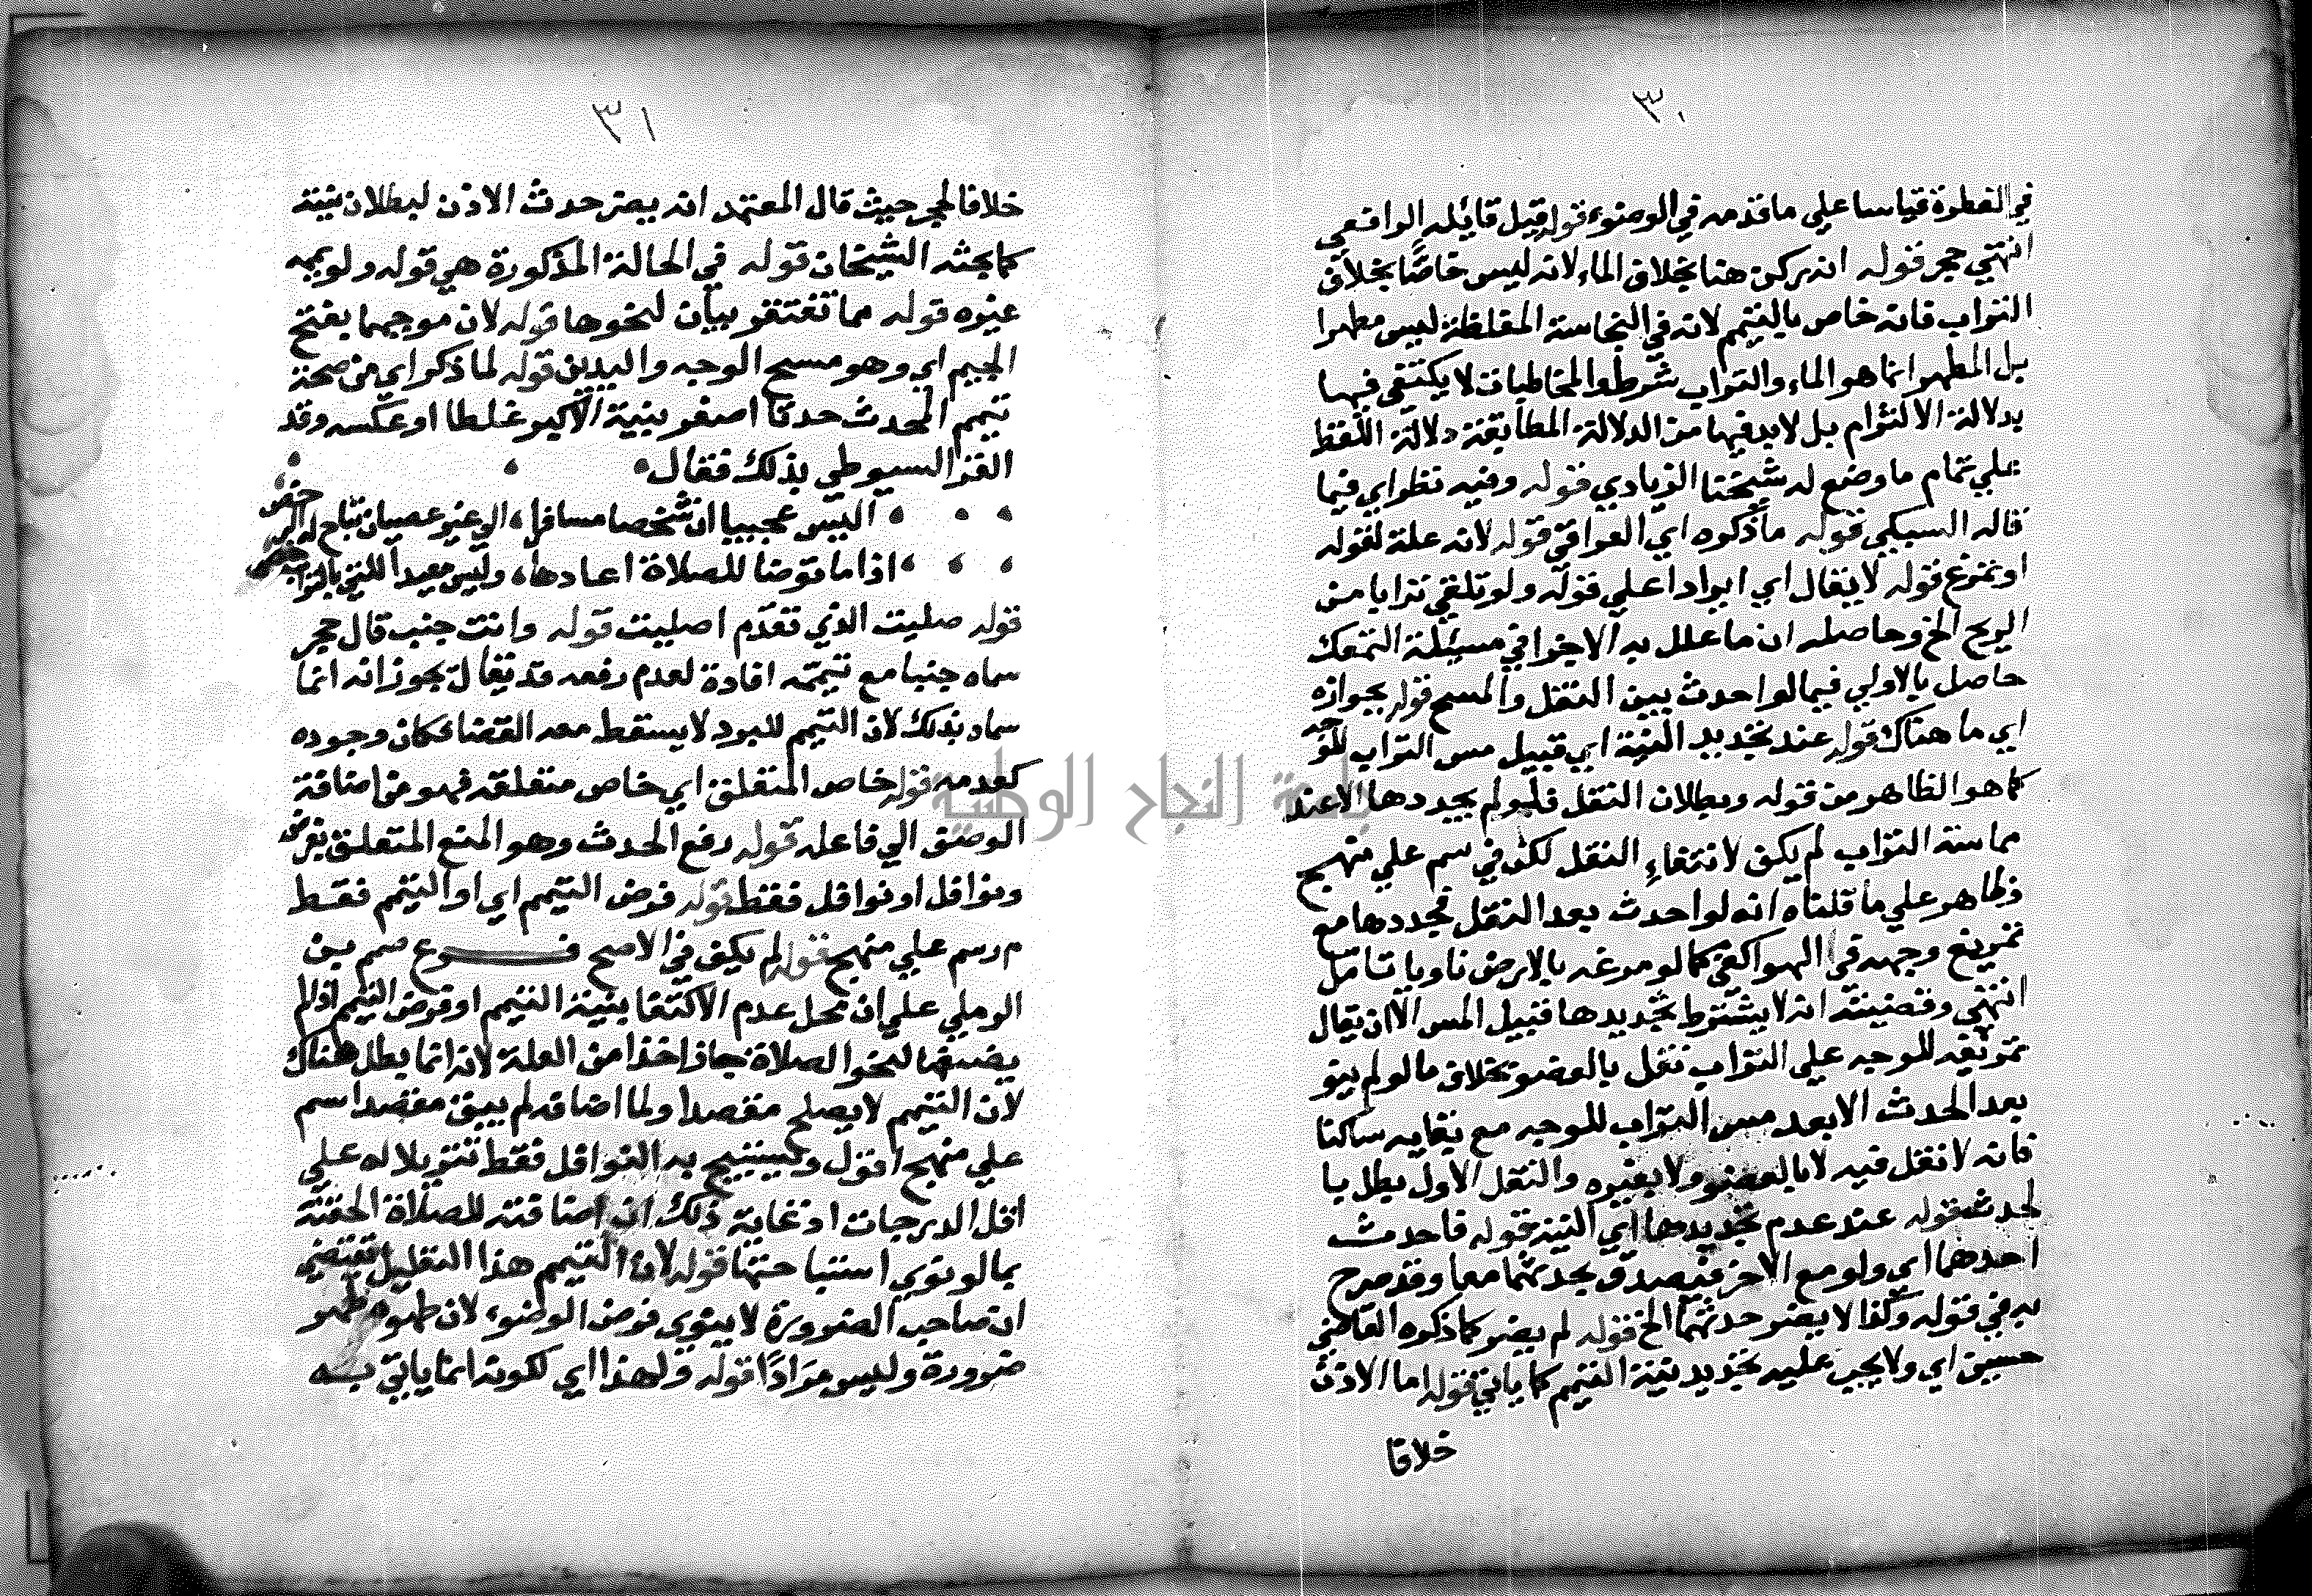 ٣٠
في الفطرة قياسا علي ما قدمه في الوضوء قوله قيل قائله الرافعي
انتهي حجر قوله انه ركن هنا بخلاف الماء لانه ليس خاصًا بخلاف
التراب فانه خاص بالتيمم لانه في النجاسة المغلظة ليس مطهرا
بل المطهر انما هو الماء والتراب شرط والمخاطبات لا يكتفي فيها
بدلالة الالتزام بل لا بد فيها من الدلالة المطابقة دلالة اللفظ
علي تمام ما وضع له شيخنا الزيادي قوله وفيه نظر اي فيما
قاله السبكي قوله ما ذكروه اي العراقي قوله لانه علة لقوله
او تمرغ قوله لا يقال اي ايرادا علي قوله ولو تلقي ترابا من
الريح الخ وحاصله ان ما علل به الاخر في مسئلة التمعك
حاصل بالاولي فيما لو احدث بين النقل والمسح قوله بجوازه
اي ما هناك قوله عند تجديد النية اي قبيل مس التراب للوجه
كما هو الظاهر من قوله وبطلان النقل فلو لم يجددها الا عند
مماسة التراب لم يكف لانتفاء النقل لكن في سم علي منهج
ظاهر علي ما قلناه انه لو احدث بعد النقل فجددها مع
تمريغ وجهه في الهواء كفي كما لو مرغه بالارض ناويا تامل
انتهي وقضيته انه لا يشترط تجديدها قبيل المس الا ان يقال
تمريغه للوجه علي التراب نقل بالعضو بخلاف ما لو لم ينو
بعد الحدث الا بعد مس التراب للوجه مع بقايه ساكنا
فانه لا نقل فيه لا بالعضو ولا بغيره والنقل الاول بطل با
لحدث قوله عند عدم تجديدها اي النية قوله فاحدث
احدهما اي ولو مع الاخر فيصدق بحدثهما معا وقد صرح
به في قوله وكذا لا يضر حدثهما الخ قوله لم يضر كما ذكره القاضي
حسين اي ولا يجب عليه تجديد نية التيمم كما ياتي قوله اما الاذن
خلافا
٣١
خلافا لحجر حيث قال المعتمد انه يضر حدث الاذن لبطلان نيته
كما بحثه الشيخان قوله في الحالة المذكورة هي قوله ولو يممه
غيره قوله مما تفتقر بيان لنحوها قوله لان موجبها بفتح
الجيم اي وهو مسح الوجه واليدين قوله لما ذكر اي من صحة
تيمم المحدث حدثا اصغر بنية الاكبر غلطا او عكسه وقد
الغز السيوطي بذلك فقال
اليس عجيبا ان شخصا مسافرا الي غير عصيان تباح له الرخص
اذا ما توضا للصلاة اعادها وليس معيدا للتي بالتراب خص
قوله صليت الذي تقدم اصليت قوله وانت جنب قال حجر
سماه جنبا مع تيممه افادة لعدم رفعه قد يقال يجوز انه انما
سماه بذلك لان التيمم للبرد لا يسقط معه القضا فكان وجوده
كعدمه قوله خاص المتعلق اي خاص متعلقه فهو من اضافة
الوصف الي فاعله قوله رفع الحدث وهو المنع المتعلق بفرض
ونوافل او نوافل فقط قوله فرض التيمم اي او التيمم فقط
م ر سم علي منهج قوله لم يكف في الاصح فرع صمم بين
الرملي علي ان محل عدم الاكتفا بنية التيمم او فرض التيمم اذا لم
يضفها لنحو الصلاة جاز اخذا من العلة لانه انما بطل هناك
لان التيمم لا يصلح مقصدا ولما اضافه لم يبق مقصدا سم
علي منهج اقول ويستبيح به النوافل فقط تنزيلا له علي
اقل الدرجات اذ غاية ذلك ان اضافته للصلاة الحقته
بما لو نوي استباحتها قوله لان التيمم هذا التعليل يقتضي
ان صاحب الضرورة لا ينوي فرض الوضوء لان طهره طهر
ضرورة وليس مرادًا قوله ولهذا اي لكونه انما ياتي به
جامعة النجاح الوطنية